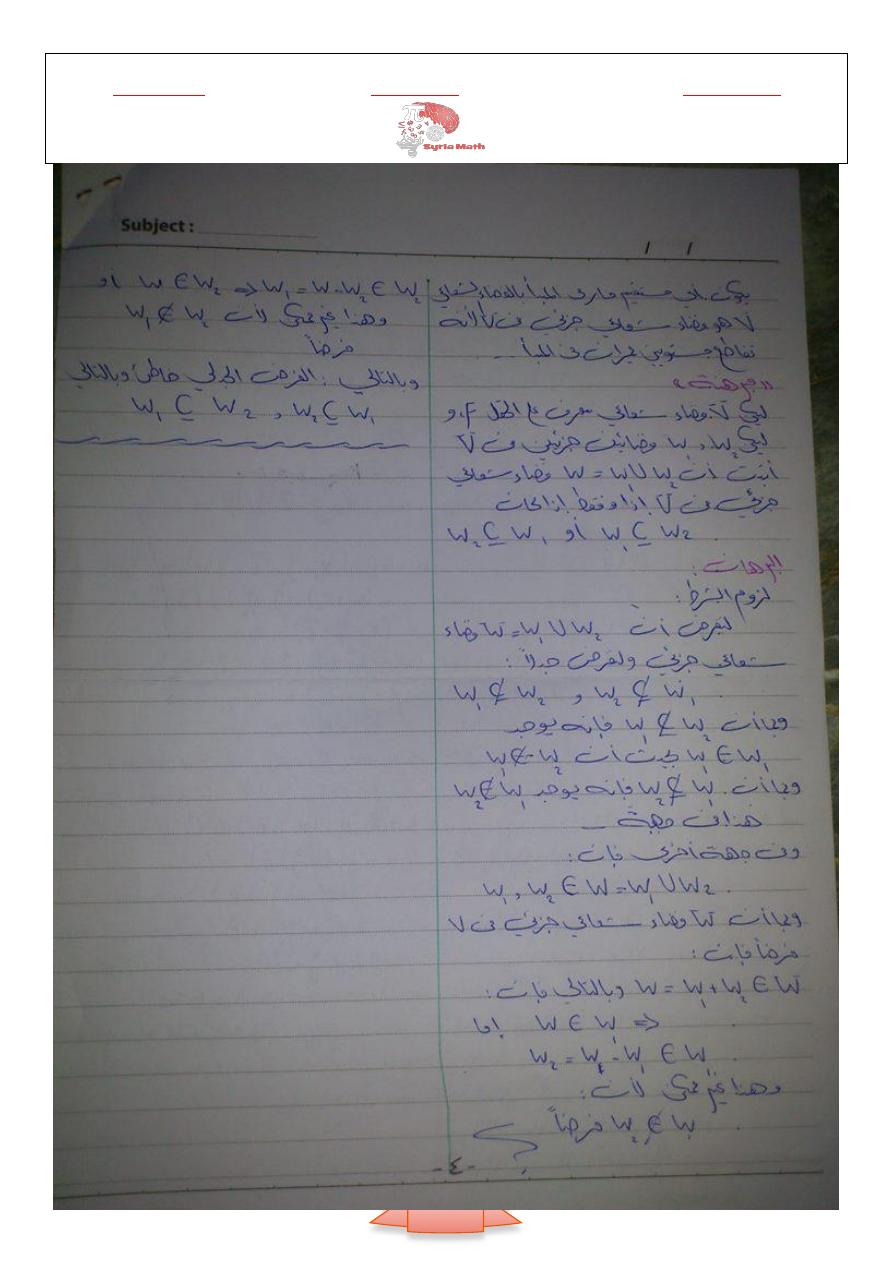 Syria Math
Subject :
يكون أي مستقيم مار في المبدأ بالفضاء الشعاعي
V هو فضاء شعاعي جزئي من V لأنه
تقاطع مستويين يمران في المبدأ
«مبرهنة»
ليكن V فضاء شعاعي معرف على الحقل F، و
ليكن W₁, W₂ فضائين جزئيين من V
أثبت أن W = W₁ ∪ W₂ فضاء شعاعي
جزئي من V إذا وفقط إذا كان
W₂ ⊆ W₁ أو W₁ ⊆ W₂
البرهان:
لزوم الشرط:
لنفرض أن W = W₁ ∪ W₂ فضاء
شعاعي جزئي ولنفرض جدلاً:
W₁ ⊄ W₂ و W₂ ⊄ W₁
وبما أن W₁ ⊄ W₂ فإنه يوجد
w₁ ∈ W₁ بحيث أن w₁ ∉ W₂
وبما أن W₂ ⊄ W₁ فإنه يوجد w₂ ∉ W₁
هذا من جهة
ومن جهة أخرى فإن:
w₁, w₂ ∈ W = W₁ ∪ W₂
وبما أن W فضاء شعاعي جزئي من V
فرضاً فإن:
w = w₁ + w₂ ∈ W وبالتالي فإن:
إما w ∈ W₁ ⇒
w₂ = w - w₁ ∈ W₁
وهذا غير ممكن لأن:
w₂ ∉ W₁ فرضاً
أو w ∈ W₂ ⇒ w₁ = w - w₂ ∈ W₂
وهذا غير ممكن لأن w₁ ∉ W₂
فرضاً
وبالتالي: الفرض الجدلي خاطئ وبالتالي
W₁ ⊆ W₂ , W₂ ⊆ W₁
-٤-